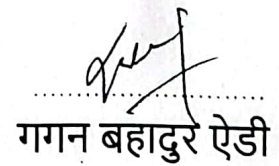 गगन बहादुर ऐडी